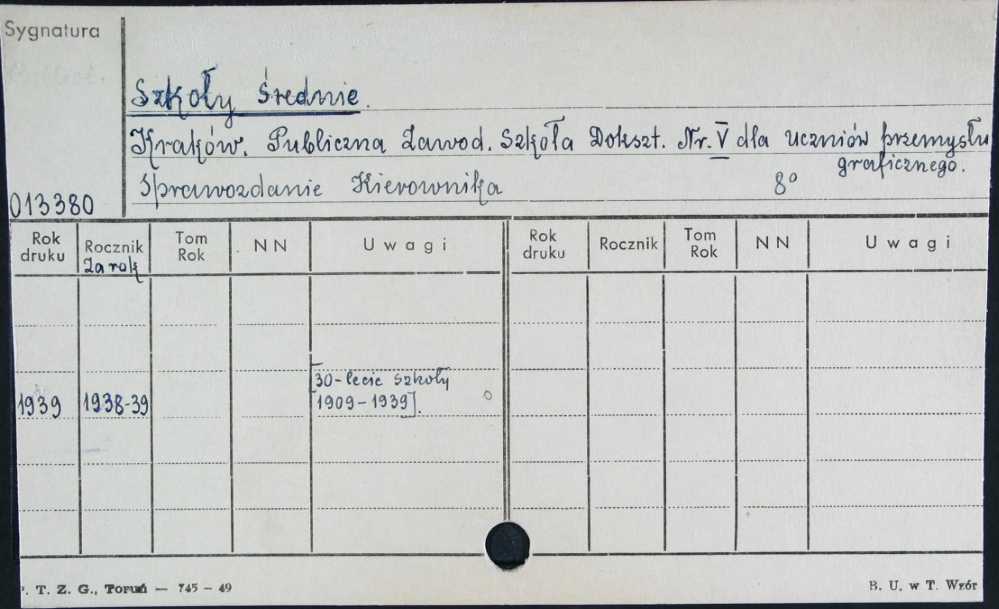 Sygnatura
Szkoły Średnie.
Kraków. Publiczna Zawod. Szkoła Dokszt. Nr. V dla uczniów przemysłu
graficznego.
Sprawozdanie Kierownika 8°
013380
Rok druku Rocznik Tom Rok NN Uwagi Rok druku Rocznik Tom Rok NN Uwagi
Za rok
[30-lecie szkoły
1939 1938-39 1909-1939]. o
T. Z. G., Toruń — 745 — 49 B. U. w T. Wzór